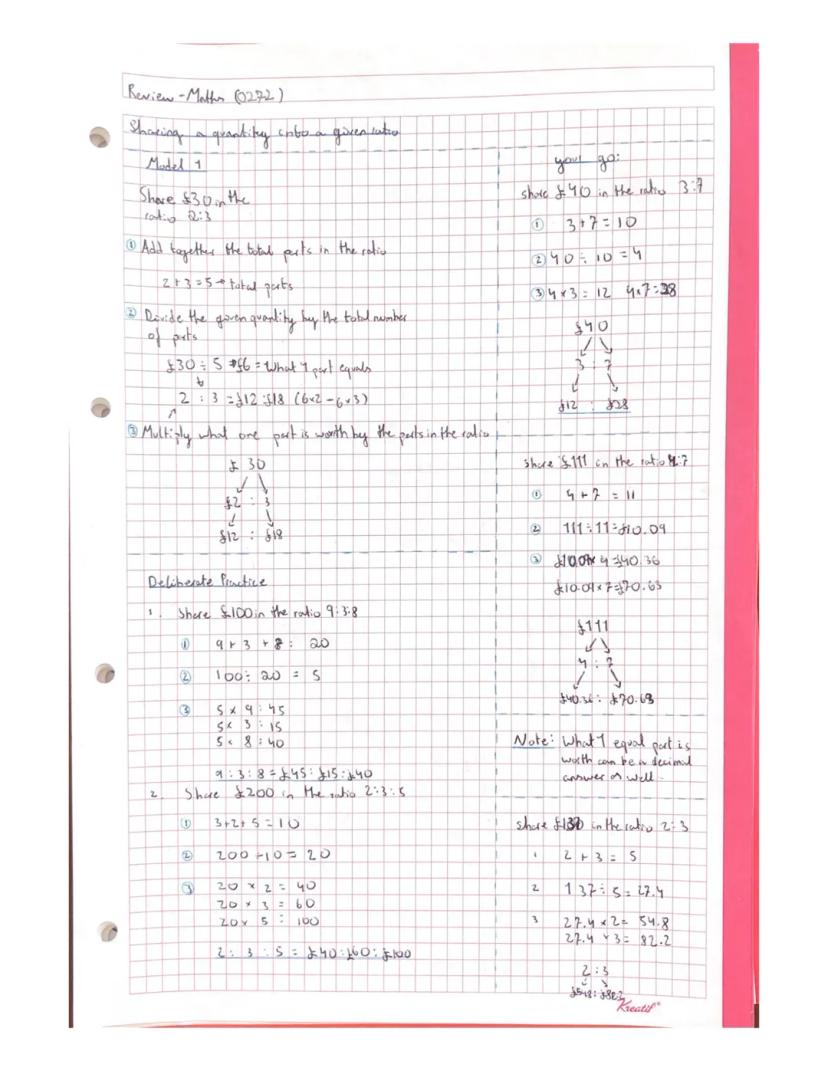 Review - Maths (0272)
Sharing a quantity into a given ratio
Model 1
Share £30 in the
ratio 2:3
① Add together the total parts in the ratio
2 + 3 = 5 → total parts
② Divide the given quantity by the total number
of parts
£30 ÷ 5 = £6 = What 1 part equals
2 : 3 = £12 : £18 (6×2 - 6×3)
③ Multiply what one part is worth by the parts in the ratio
£ 30
£2 : 3
£12 : £18
Deliberate Practice
1. Share £100 in the ratio 9:3:8
① 9 + 3 + 8 : 20
② 100 ÷ 20 = 5
③ 5 × 9 : 45
5 × 3 : 15
5 × 8 : 40
9 : 3 : 8 = £45 : £15 : £40
2. Share £200 in the ratio 2:3:5
① 3+2+5 = 10
② 200 ÷ 10 = 20
③ 20 × 2 = 40
20 × 3 = 60
20 × 5 = 100
2 : 3 : 5 = £40 : £60 : £100
your go:
share £40 in the ratio 3:7
① 3+7 = 10
② 40 ÷ 10 = 4
③ 4×3 = 12 4×7 = 28
£40
3 : 7
£12 : £28
share £111 in the ratio 4:7
① 4 + 7 = 11
② 111 ÷ 11 = £10.09
③ £10.09 × 4 = £40.36
£10.09 × 7 = £70.63
£111
4 : 7
£40.36 : £70.63
Note: What 1 equal part is
worth can be a decimal
answer as well.
share £137 in the ratio 2:3
1 2 + 3 = 5
2 137 ÷ 5 = 27.4
3 27.4 × 2 = 54.8
27.4 × 3 = 82.2
2 : 3
£54.8 : £82.2
Kreatif